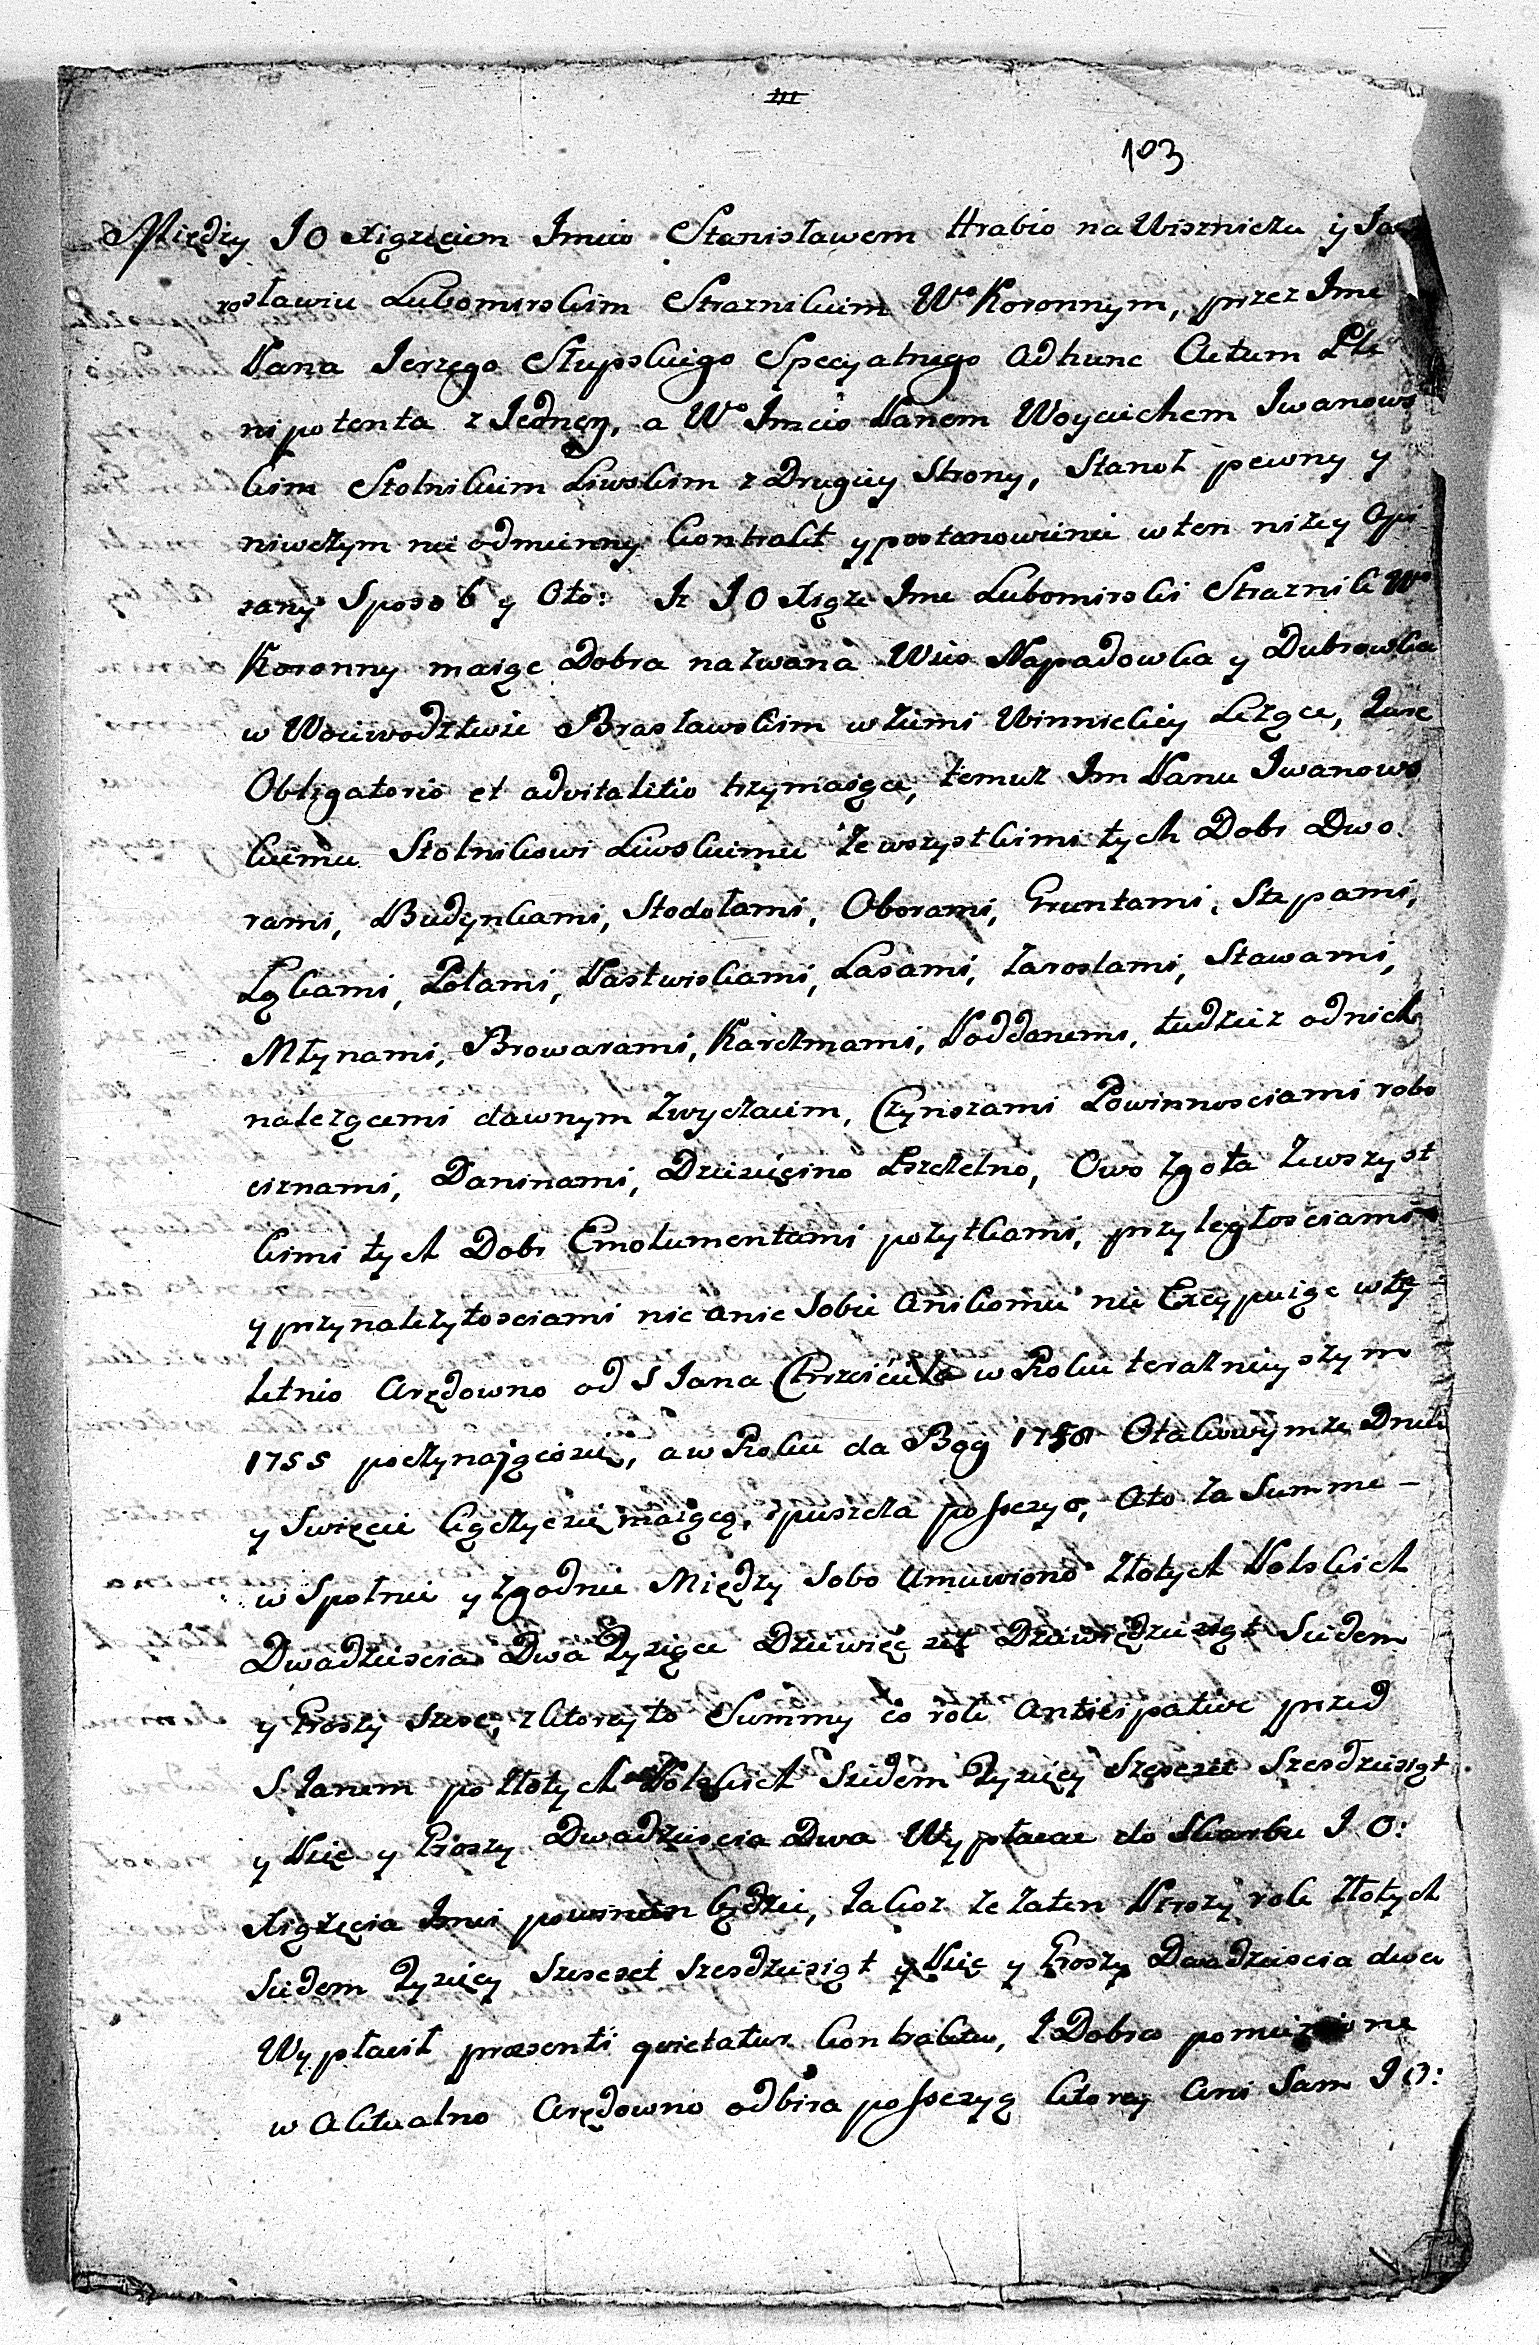 111
103
Między J O Xiązęciem Jmcio Stanisławem Hrabio na Wiszniczu y Ja
rosławiu Lubomirskim Straznikiem Wo Koronnym, przez Jme
Pana Jerzego Stepskiego Specyalnego ad hunc Actum Ple
nipotenta z Jedney, a Wo Jmcio Panem Woyciechem Iwanows
kim Stolnikiem Liwskim z Drugiey Strony, Stanoł pewny y
niwczym nie odmienny Contrakt y postanowienie w ten nizey Opi
sany Sposob y Oto: Iz J O Xiąze Jme Lubomirski Straznik Wo
Koronny maiąc Dobra nazwana Wsio Napadowka y Dubrowka
w Woiewodztwie Brasławskim w Ziemi Winnickiey Lezące, Jure
Obligatorio et advitalitio trzymaiące, temuz Jm Panu Iwanows
kiemu Stolnikowi Liwskiemu ze wszystkimi tych Dobr Dwo
rami, Budynkami, Stodołami, Oborami, Gruntami, Stepami,
Łąkami, Polami, Pastwiskami, Lasami, Zaroslami, Stawami,
Młynami, Browarami, Karczmami, Poddanemi, tudziez od nich
nalezącemi dawnym Zwyczaiem, Czynszami Powinnosciami robo
ciznami, Daninami, Dziesięcino Pszczelno, Owo zgoła Zewszyst
kimi tych Dobr Emolumentami pozytkami, przyległosciami
y przynalezytosciami nic a nic Sobie Anikomu nie Excypuiąc w trzy
letnio Arędowno od S Jana Chrzciciela w Roku teraznieyszym
1755 poczynającosie, a w Roku da Bog 1758 O takowymze Dniu
y Swięcie kączycsię maiącą, spuszcza possezyo, Ato za Summe -
w Spolnie y zgodnie Między Sobo Umuwiono Złotych Polskich
Dwadziescia Dwa Tysiące Dziewięc set Dziewiędziesiąt Siedem
y Groszy Szesc, z ktorey to Summy co rok anticipative przed
S. Janem po Złotych Polskich Siedem Tysięcy Szescset Szesdziesiąt
y Pięc y Groszy Dwadziescia Dwa Wypłacac do Skarbu J O:
Xiązęcia Jmci powinien będzie, Jakoz ze za ten Pierszy rok Złotych
Siedem Tysięcy Szescset Szesdziesiąt y Pięc y Groszy Dwadziescia dwa
Wypłacił praesenti quietatur Contractu, I Dobra pomienione
w Aktualno Arędowno odbira possezyą ktorey Ani Sam J O: